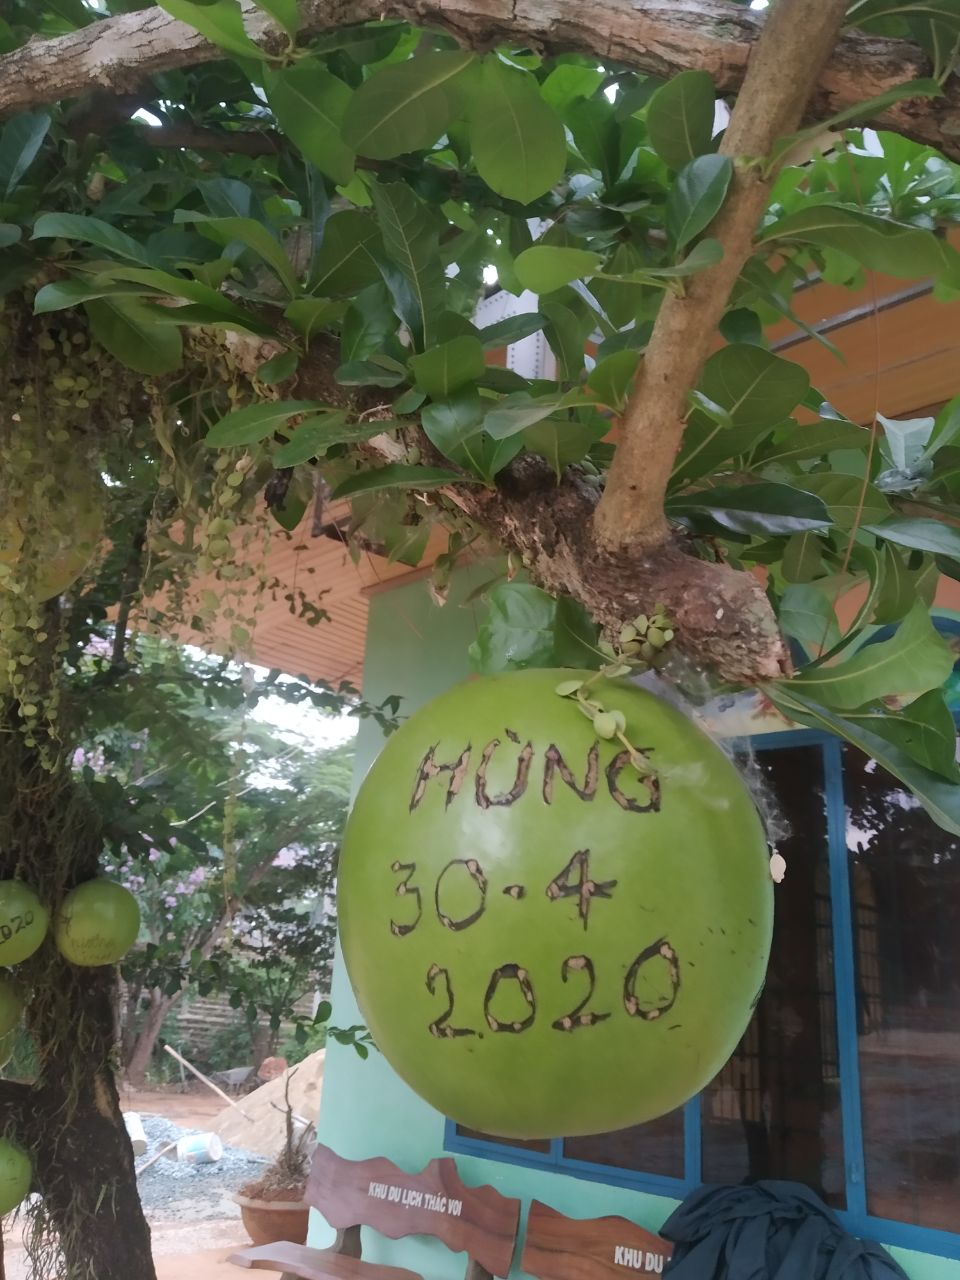 HÙNG
30-4
2020
2020
KHU DU LỊCH THÁC VOI
KHU DU